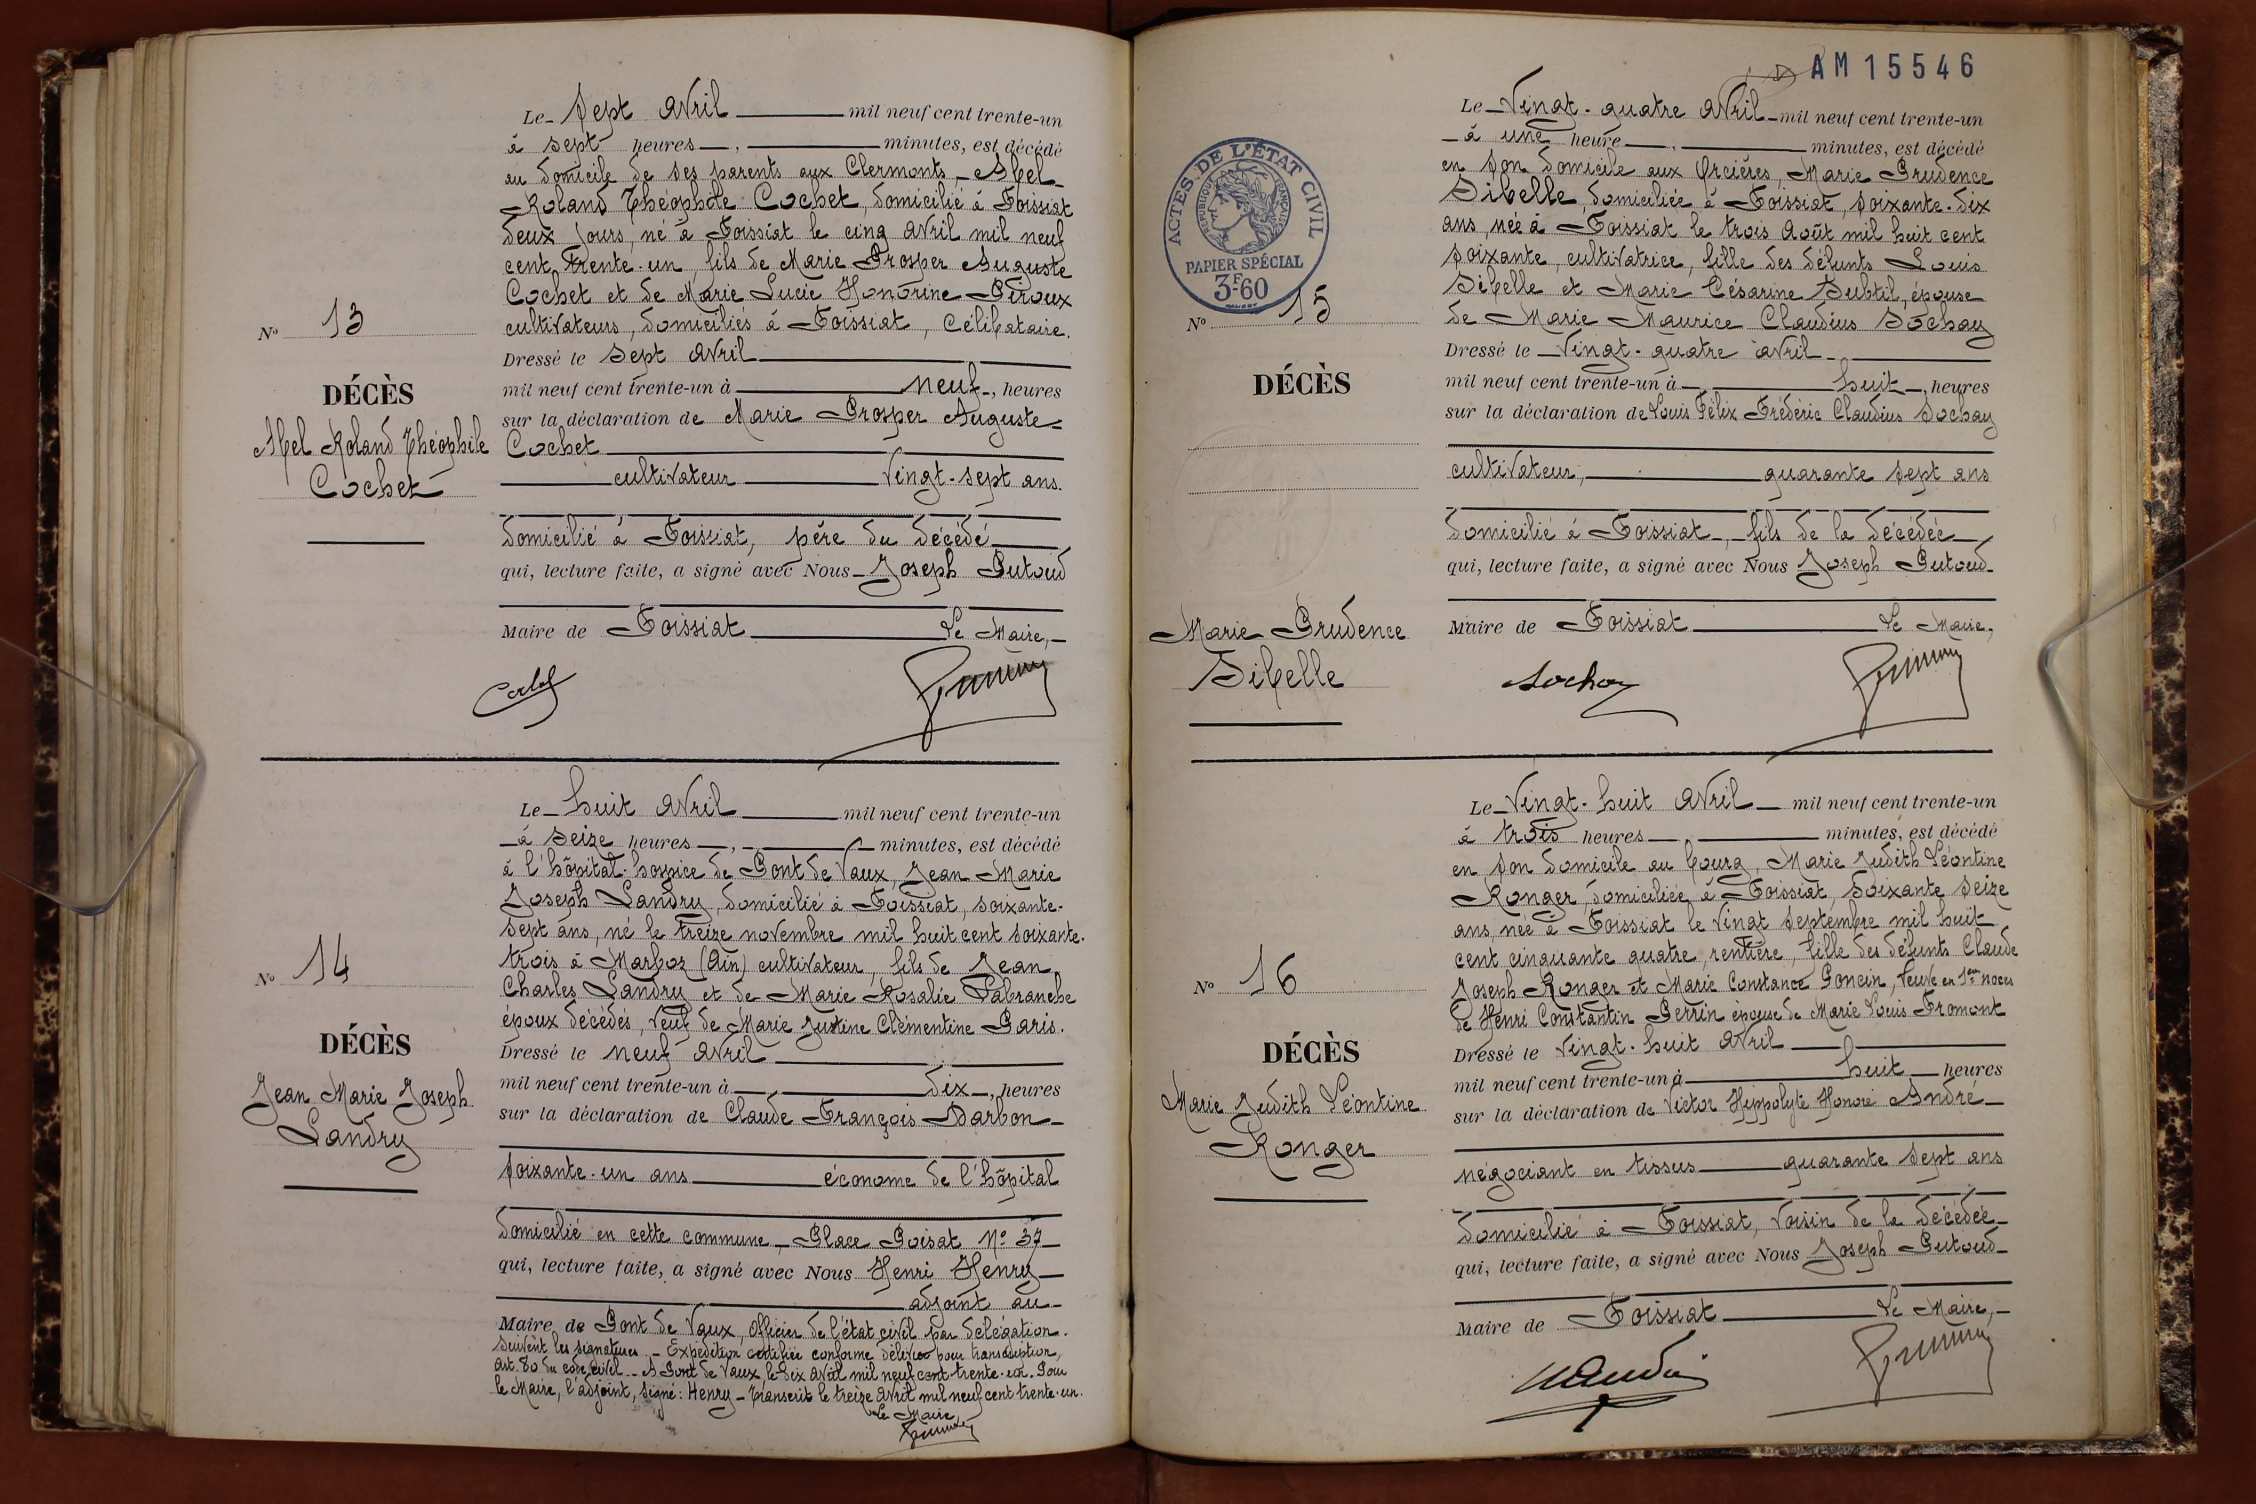 Le Sept avril mil neuf cent trente-un
à sept heures , minutes, est décédé
au domicile de ses parents aux Clermonts, Abel
Roland Théophile Cochet, domicilié à Foissiat
deux jours, né à Foissiat le cinq avril mil neuf
cent trente-un, fils de Marie Prosper Auguste
Cochet et de Marie Lucie Honorine Piroux
cultivateurs, domiciliés à Foissiat, célibataire.
Dressé le sept avril
mil neuf cent trente-un à neuf , heures
sur la déclaration de Marie Prosper Auguste
Cochet
cultivateur vingt-sept ans.
domicilié à Foissiat, père du décédé
qui, lecture faite, a signé avec Nous Joseph Putoud
Maire de Foissiat Le Maire,
No 13
DÉCÈS
Abel Roland Théophile
Cochet
Le huit avril mil neuf cent trente-un
à seize heures , minutes, est décédé
à l'hôpital-hospice de Pont de Vaux, Jean Marie
Joseph Landry, domicilié à Foissiat, soixante-
sept ans, né le treize novembre mil huit cent soixante-
trois à Marboz (Ain) cultivateur, fils de Jean
Charles Landry et de Marie Rosalie Labranche
époux décédés, veuf de Marie Justine Clémentine Paris.
Dressé le neuf avril
mil neuf cent trente-un à dix , heures
sur la déclaration de Claude François Darbon
soixante-un ans économe de l'hôpital
domicilié en cette commune, Place Poisat No 37
qui, lecture faite, a signé avec Nous Henri Henry
adjoint au
Maire de Pont de Vaux, officier de l'état civil par délégation.
Suivent les signatures. - Expédition certifiée conforme délivrée pour transcription,
art. 80 du code civil. - A Pont de Vaux, le dix avril mil neuf cent trente-un. Pour
le Maire, l'adjoint, signé : Henry - Transcrit le treize avril mil neuf cent trente-un.
Le Maire
No 14
DÉCÈS
Jean Marie Joseph
Landry
AM 15546
ACTES DE L'ÉTAT CIVIL
RÉPUBLIQUE FRANÇAISE
PAPIER SPÉCIAL
3F.60
Le Vingt-quatre avril mil neuf cent trente-un
à une heure , minutes, est décédé
en son domicile aux Orcières, Marie Prudence
Sibelle, domiciliée à Foissiat, soixante-dix
ans, née à Foissiat le trois août mil huit cent
soixante, cultivatrice, fille des défunts Louis
Sibelle et Marie Césarine Subtil, épouse
de Marie Maurice Claudius Sochay
Dressé le vingt-quatre avril
mil neuf cent trente-un à huit , heures
sur la déclaration de Louis Félix Frédéric Claudius Sochay
cultivateur, quarante sept ans
domicilié à Foissiat, fils de la décédée
qui, lecture faite, a signé avec Nous Joseph Putoud
Maire de Foissiat Le Maire,
Sochay
No 15
DÉCÈS
Marie Prudence
Sibelle
Le Vingt-huit avril mil neuf cent trente-un
à trois heures , minutes, est décédé
en son domicile au bourg, Marie Judith Léontine
Ronger, domiciliée à Foissiat, soixante seize
ans, née à Foissiat le vingt septembre mil huit
cent cinquante quatre, rentière, fille des défunts Claude
Joseph Ronger et Marie Constance Poncin, veuve en 1ères noces
de Henri Constantin Perrin épouse de Marie Louis Fromont
Dressé le vingt-huit avril
mil neuf cent trente-un à huit heures
sur la déclaration de Victor Hippolyte Honoré André
négociant en tissus quarante sept ans
domicilié à Foissiat, voisin de la décédée
qui, lecture faite, a signé avec Nous Joseph Putoud
Maire de Foissiat Le Maire,
No 16
DÉCÈS
Marie Judith Léontine
Ronger